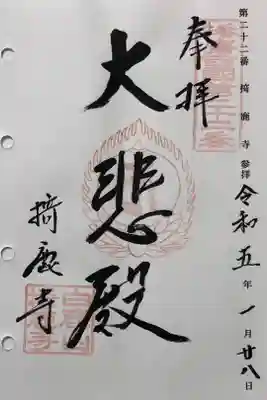 第二十二番 掎鹿寺 參拜 令和五年一月廿八日
奉拝
大悲殿
掎鹿寺